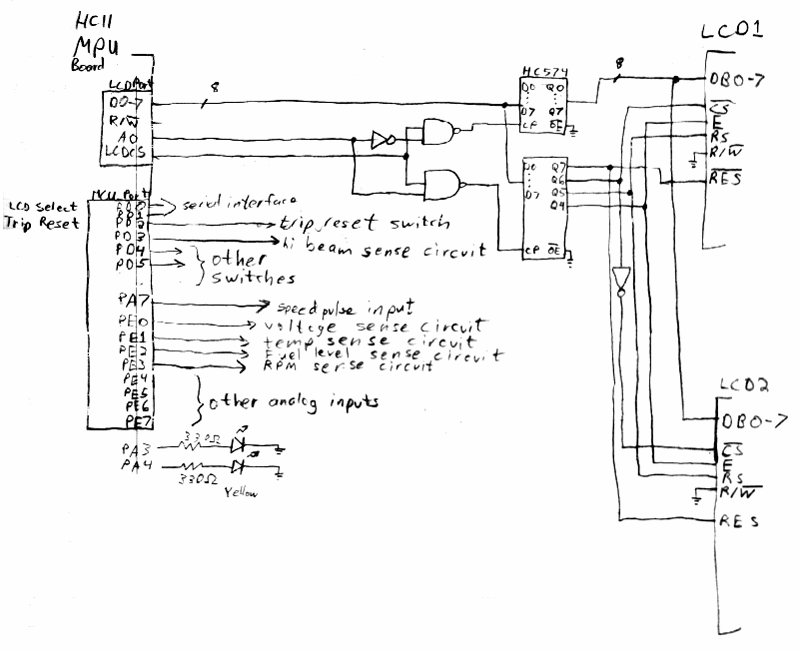 HC11
MPU
Board
LCD Port
D0-7
R/W
A0
LCDCS
8
HC574
D0 Q0
D7 Q7
CP OE
D0 Q7
Q6
D7 Q5
Q4
CP OE
8
LCD1
DB0-7
CS
E
RS
R/W
RES
MCU Port
LCD Select
Trip Reset
PD0
PD1
PD2
PD3
PD4
PD5
serial interface
trip reset switch
hi beam sense circuit
other
switches
PA7
speed pulse input
PE0
voltage sense circuit
PE1
temp sense circuit
PE2
Fuel level sense circuit
PE3
RPM sense circuit
PE4
PE5
PE6
PE7
other analog inputs
PA3
330Ω
PA4
330Ω
Yellow
LCD2
DB0-7
CS
E
RS
R/W
RES